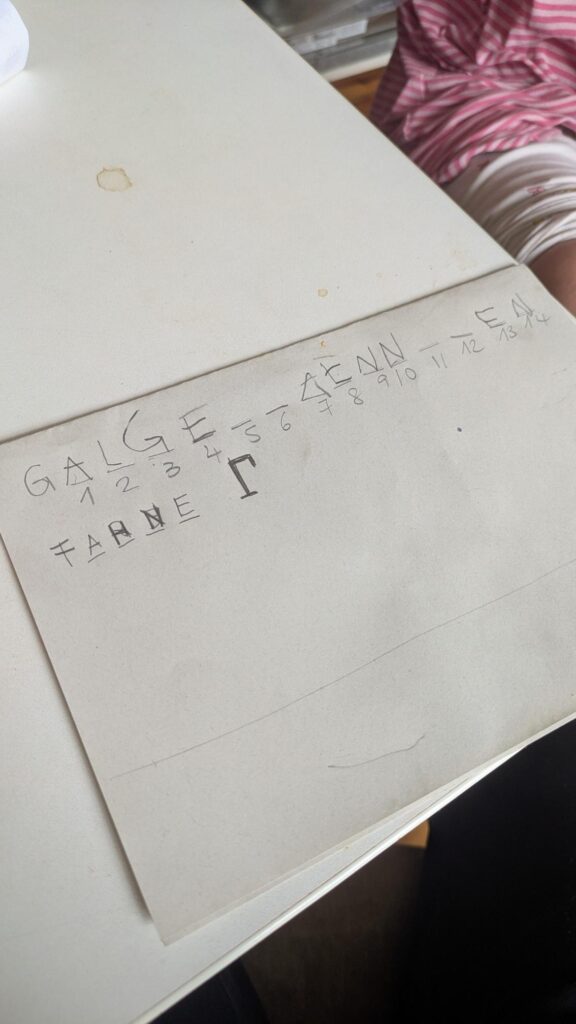 GALGE__AENN__EN
1 2 3 4 5 6 7 8 9 10 11 12 13 14
FAHNE